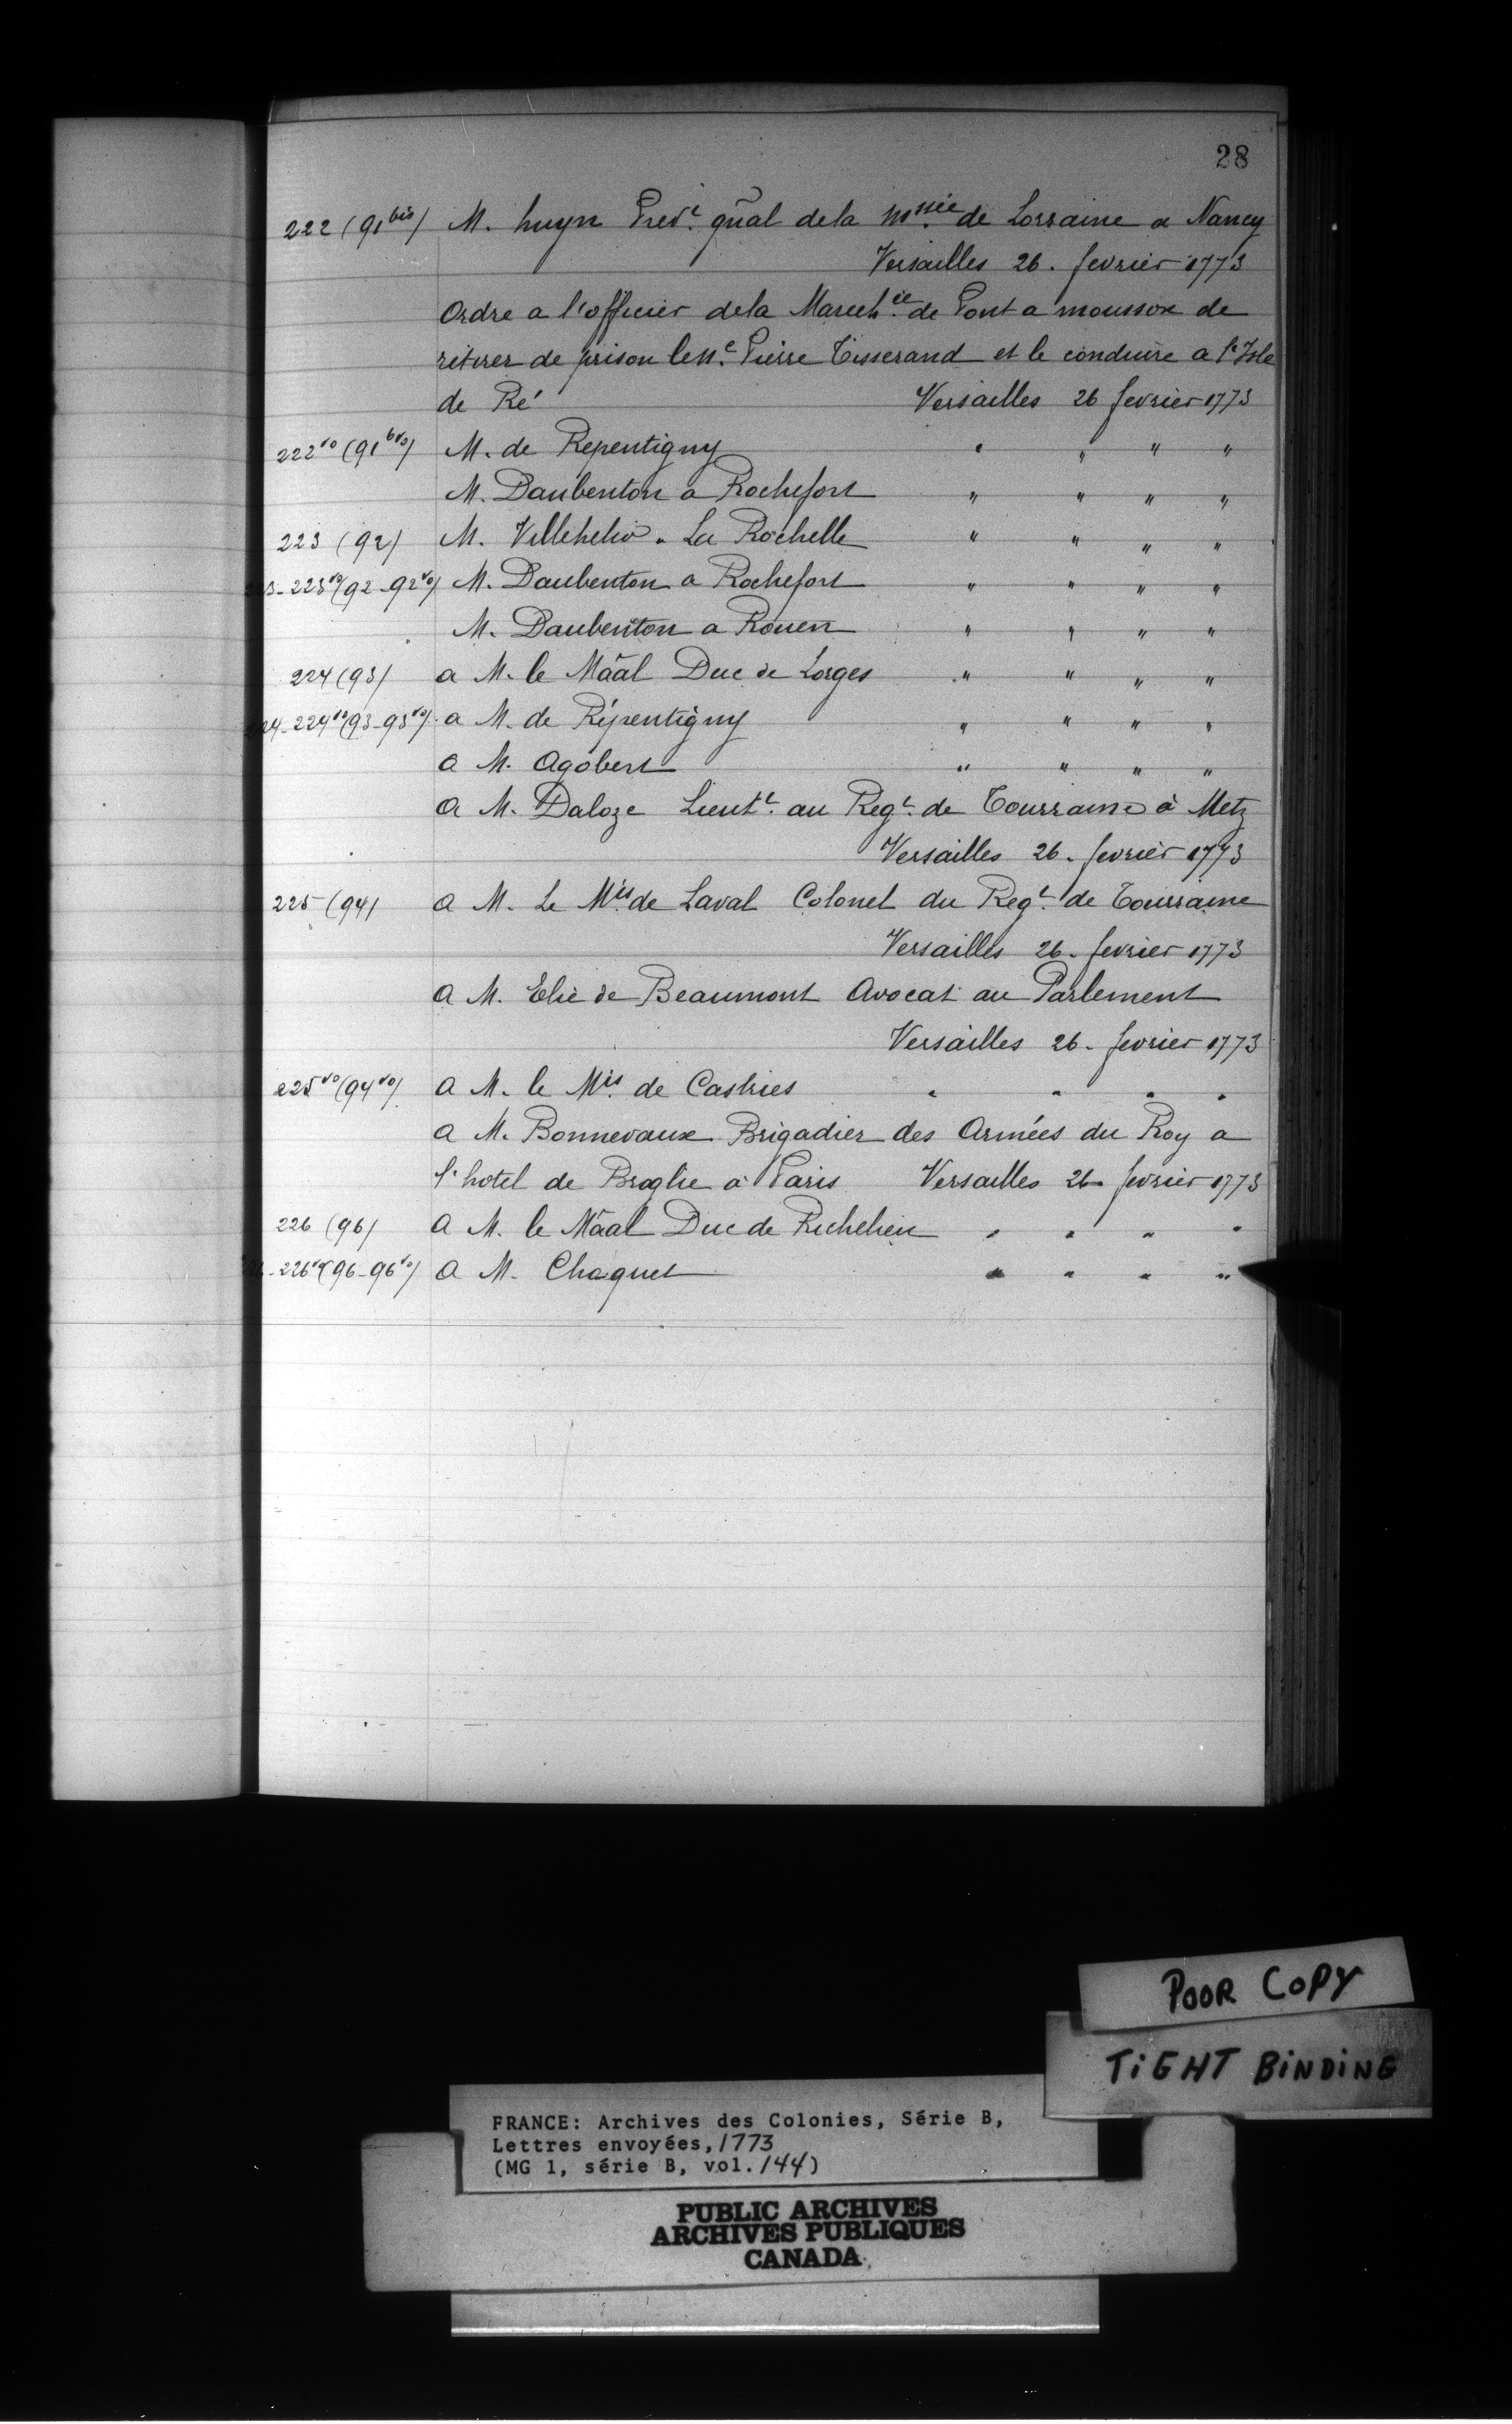 28
222 (91 bis) M. huyn Prev.t gñal de la M.ssée de Lorraine a Nancy
Versailles 26. fevrier 1773
Ordre a l'officier de la Marech.ée de Pont a mousson de
retirer de prison le n.é Pierre Tisserand et le conduire a l'Isle
de Ré Versailles 26 fevrier 1773
222 vo (91 bvo) M. de Repentigny " " " "
M. Daubenton a Rochefort " " " "
223 (92) M. Villehelio. La Rochelle " " " "
223-223 vo (92-92 vo) M. Daubenton a Rochefort " " " "
M. Daubenton a Rouen " " " "
224 (93) a M. le Mâal Duc de Lorges " " " "
224-224 vo (93-93 vo) a M. de Répentigny " " " "
a M. Agobert " " " "
a M. Daloze Lieut.t au Reg.t de Tourraine à Metz
Versailles 26. fevrier 1773
225 (94) a M. Le M.is de Laval Colonel du Reg.t de Tourraine
Versailles 26. fevrier 1773
a M. Elie de Beaumont Avocat au Parlement
Versailles 26. fevrier 1773
225 vo (94 vo) a M. le M.is de Castries " " " "
a M. Bonnevaux Brigadier des Armées du Roy a
l'hotel de Broglie a Paris Versailles 26 fevrier 1773
226 (96) a M. le Mâal Duc de Richelieu " " " "
226-226 vo (96-96 vo) a M. Choquet " " " "
POOR COPY
TIGHT BINDING
FRANCE: Archives des Colonies, Série B,
Lettres envoyées, 1773
(MG 1, série B, vol. 144)
PUBLIC ARCHIVES
ARCHIVES PUBLIQUES
CANADA